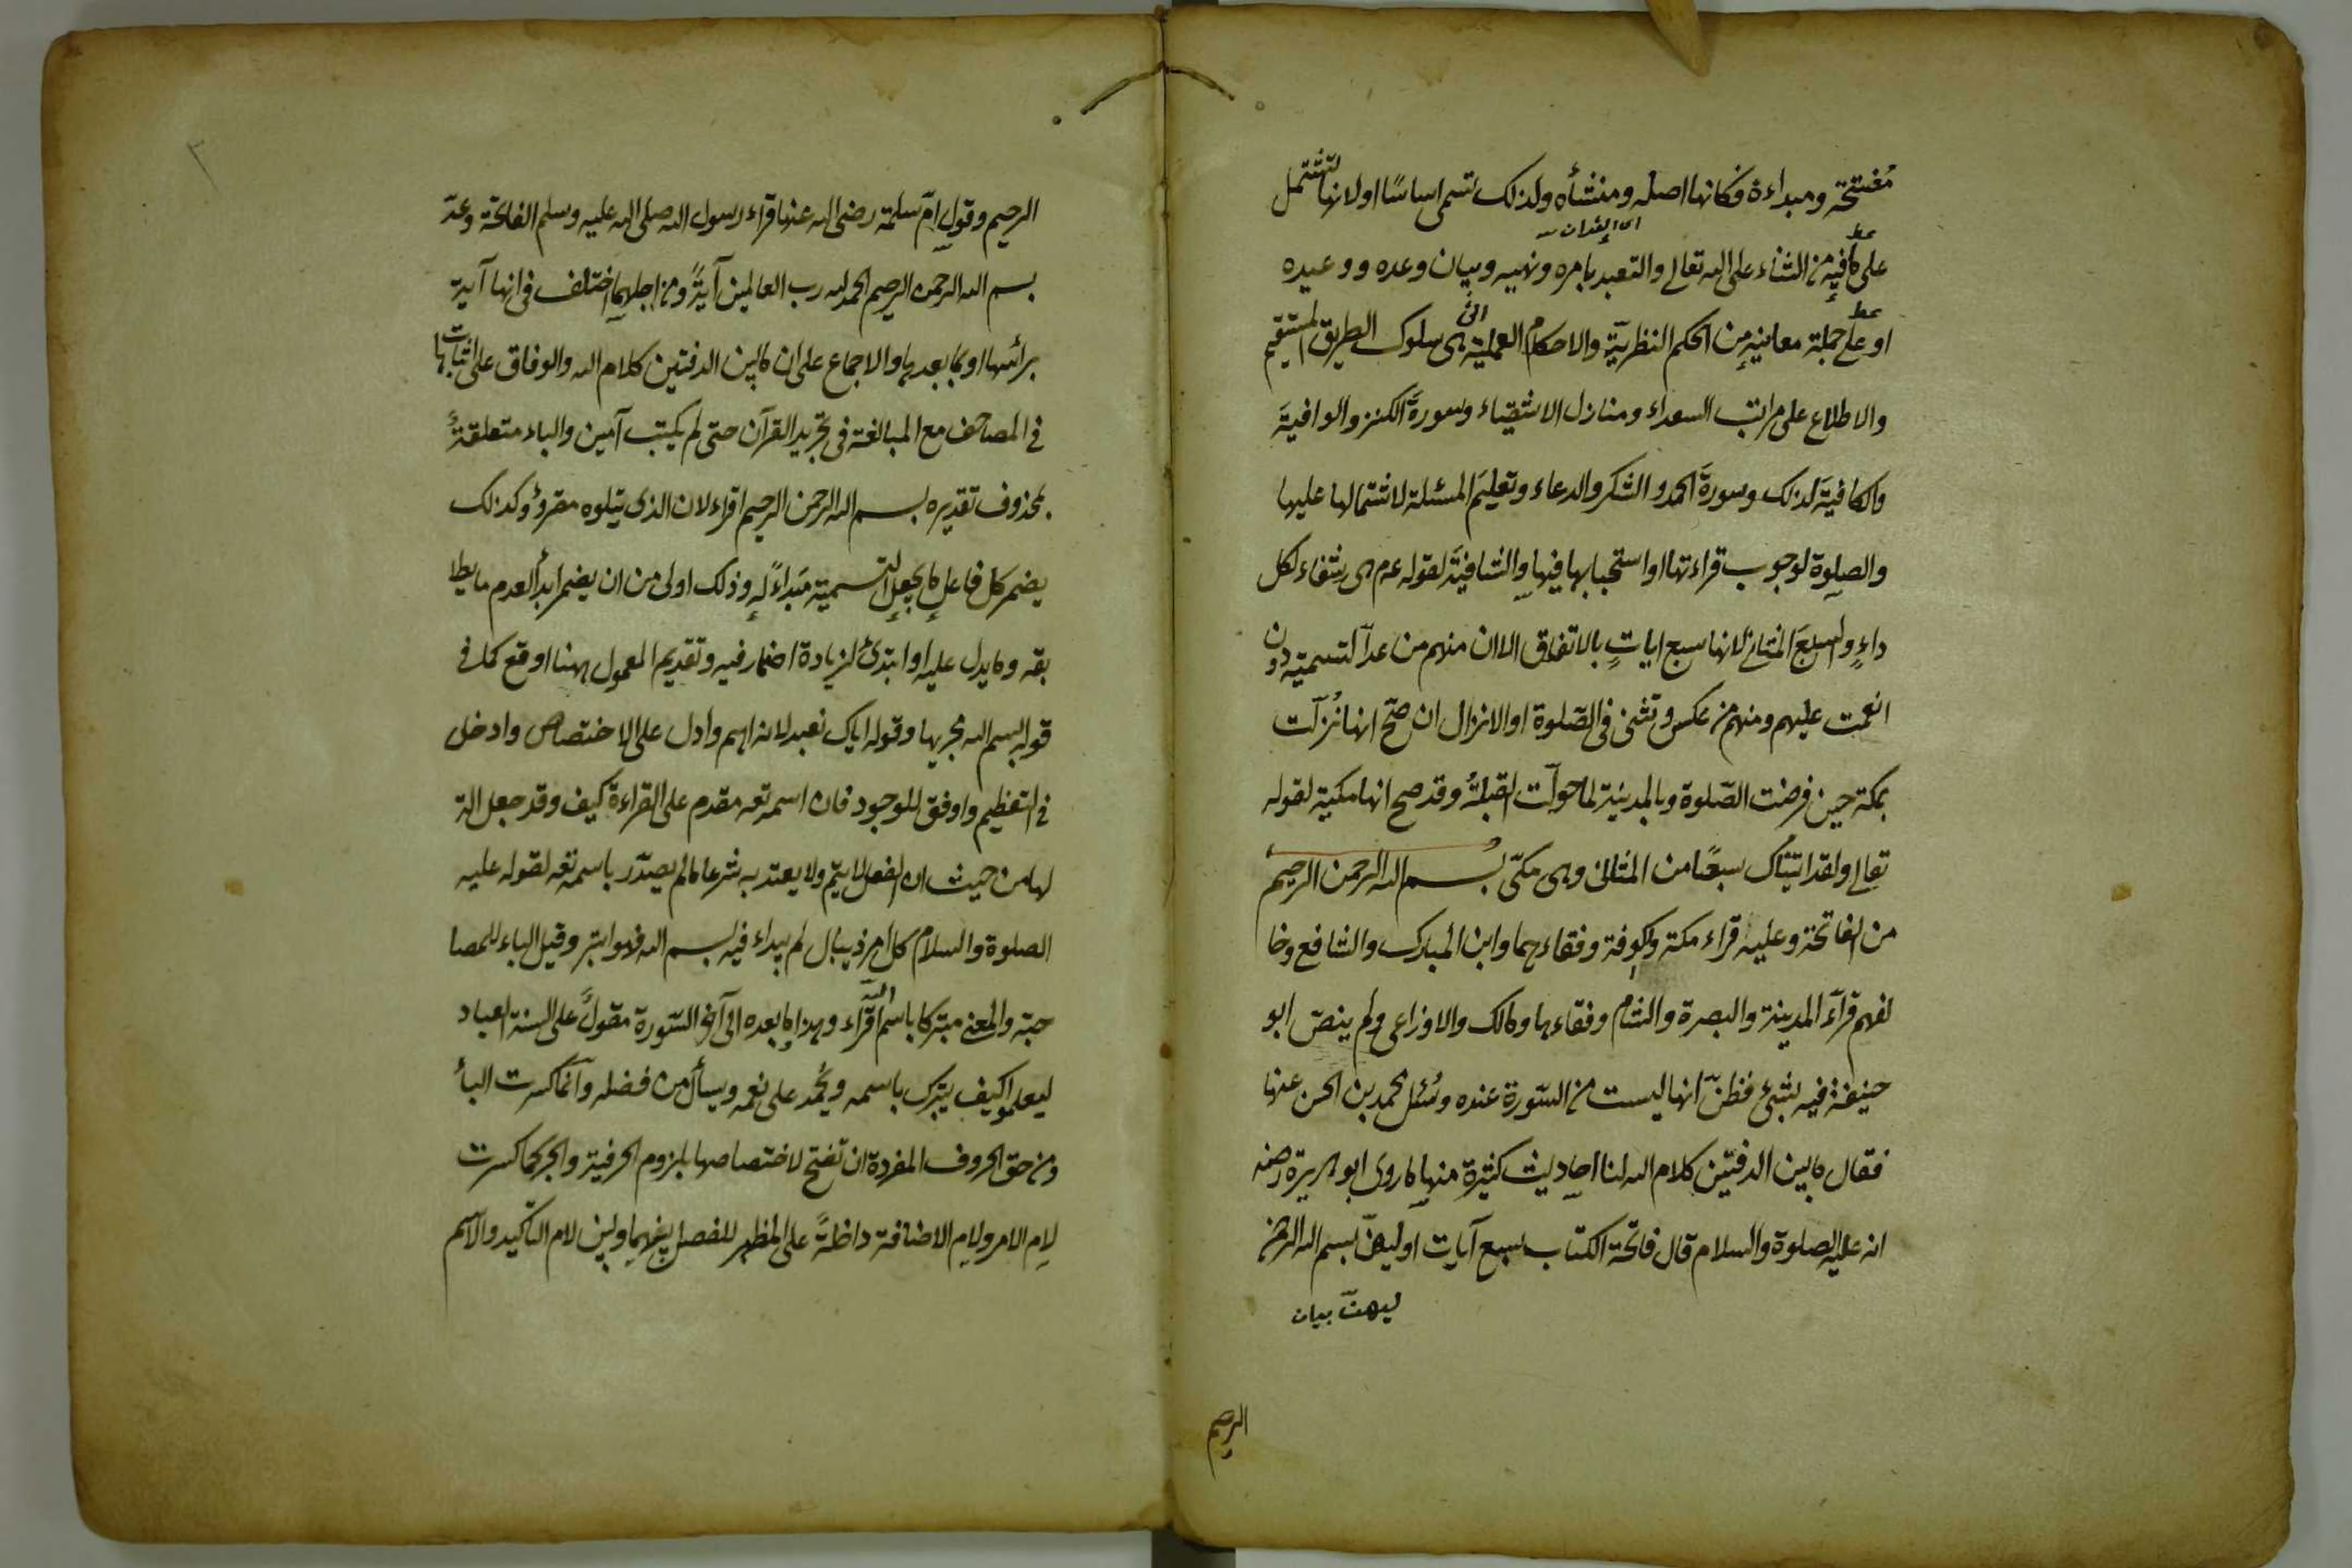 مُفتتحَه ومبداءه فكانها اصله ومنشأه ولذلك تسمى اساسًا اولانها تشتمل
اى القران
على ما فيه من الثناء على الله تعالى والتعبد بامره ونهيه وبيان وعده ووعيده
او على جملة معانيه من الحكم النظرية والاحكام العملية التى هى سلوك الطريق المستقيم
والاطلاع على مراتب السعداء ومنازل الاشقياء وسورةَ الكنز والوافيةَ
والكافيةَ لذلك وسورةَ الحمد والشكر والدعاء وتعليمَ المسئلة لاشتمالها عليها
والصلوة لوجوب قراءتها او استحبابها فيها والشافيةَ لقوله عم هى شفاء لكل
داءٍ والسبعَ المثانى لانها سبع اياتٍ بالاتفاق الا ان منهم من عدّ التسمية دون
انعمت عليهم ومنهم من عكس وتثنى فى الصّلوة او الانزال ان صحّ انها نُزلت
بمكة حين فرضت الصّلوة وبالمدينة لما حولت القبلةُ وقد صح انها مكية لقوله
تعالى ولقد اتيناك سبعًا من المثانى وهى مكّى بسم الله الرحمن الرحيم
من الفاتحة وعليه قراء مكة والكوفة وفقاءهما وابن المبارك والشافع وخا
لفهم قرآء المدينة والبصرة والشام وفقاءها ومالك والاوزاعى ولم ينصّ ابو
حنيفة فيه بشئ فظنّ انها ليست من السّورة عنده وسُئل محمد بن الحسن عنها
فقال ما بين الدفتين كلام الله لنا احاديث كثيرة منها ما روى ابو هريرة رضه
انه عليه الصلوة والسلام قال فاتحة الكتاب سبع آيات اوليهنّ بسم الله الرحمن
ليهنّ بيان
الرحيم
الرحيم وقول امّ سلمة رضى الله عنها قراء رسول الله صلى الله عليه وسلم الفاتحة وعدّ
بسم الله الرحمن الرحيم الحمد لله رب العالمين آيةً ومن اجلهما اختلف فى انها آية
برائسها او بما بعدها والاجماع على ان ما بين الدفتين كلام الله والوفاق على اثباتها
فى المصاحف مع المبالغة فى تجريد القرآن حتى لم يكتب آمين والباء متعلقةٌ
بمحذوف تقديره بسم الله الرحمن الرحيم اقراء لان الذى يتلوه مقروؤ وكذلك
يضمر كل فاعل ما يجعل التسمية مَبداءً له وذلك اولى من ان يضمر ابدأ لعدم ما يطا
بقه وما يدل عليه او ابتدئ لزيادة اضمار فيه وتقديم المعمول ههنا اوقع كما فى
قوله بسم الله مجريها وقوله اياك نعبد لانه اهم وادل على الاختصاص وادخل
فى التعظيم واوفق للوجود فان اسمه تعه مقدم على القراءة كيف وقد جعل الة
لها من حيث ان الفعل لا يتم ولا يعتد به شرعا ما لم يصدّر باسمه تعه لقوله عليه
الصلوة والسلام كل امر ذيبال لم يبداء فيه بسم الله فهو ابتر وقيل الباء للمصا
حبة والمعنى متبركا باسم الله اقراء وهذا وما بعده الى آخر السّورة مقولٌ على السنة العباد
ليعلموا كيف يتبرك باسمه ويُحمد على نعمه ويسأل من فضله وانما كسرت الباء
ومن حق الحروف المفردة ان تفتح لاختصاصها بلزوم الحرفية والجر كما كسرت
لام الامر ولام الاضافة داخلةً على المظهر للفصل بينهما وبين لام التأكيد والاسم